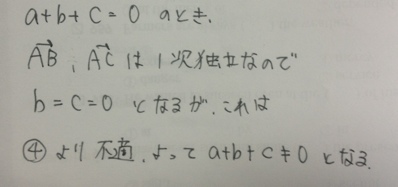 a+b+c=0 のとき、
AB→, AC→ は1次独立なので
b=c=0 となるが、これは
④より不適、よって a+b+c≠0 となる.